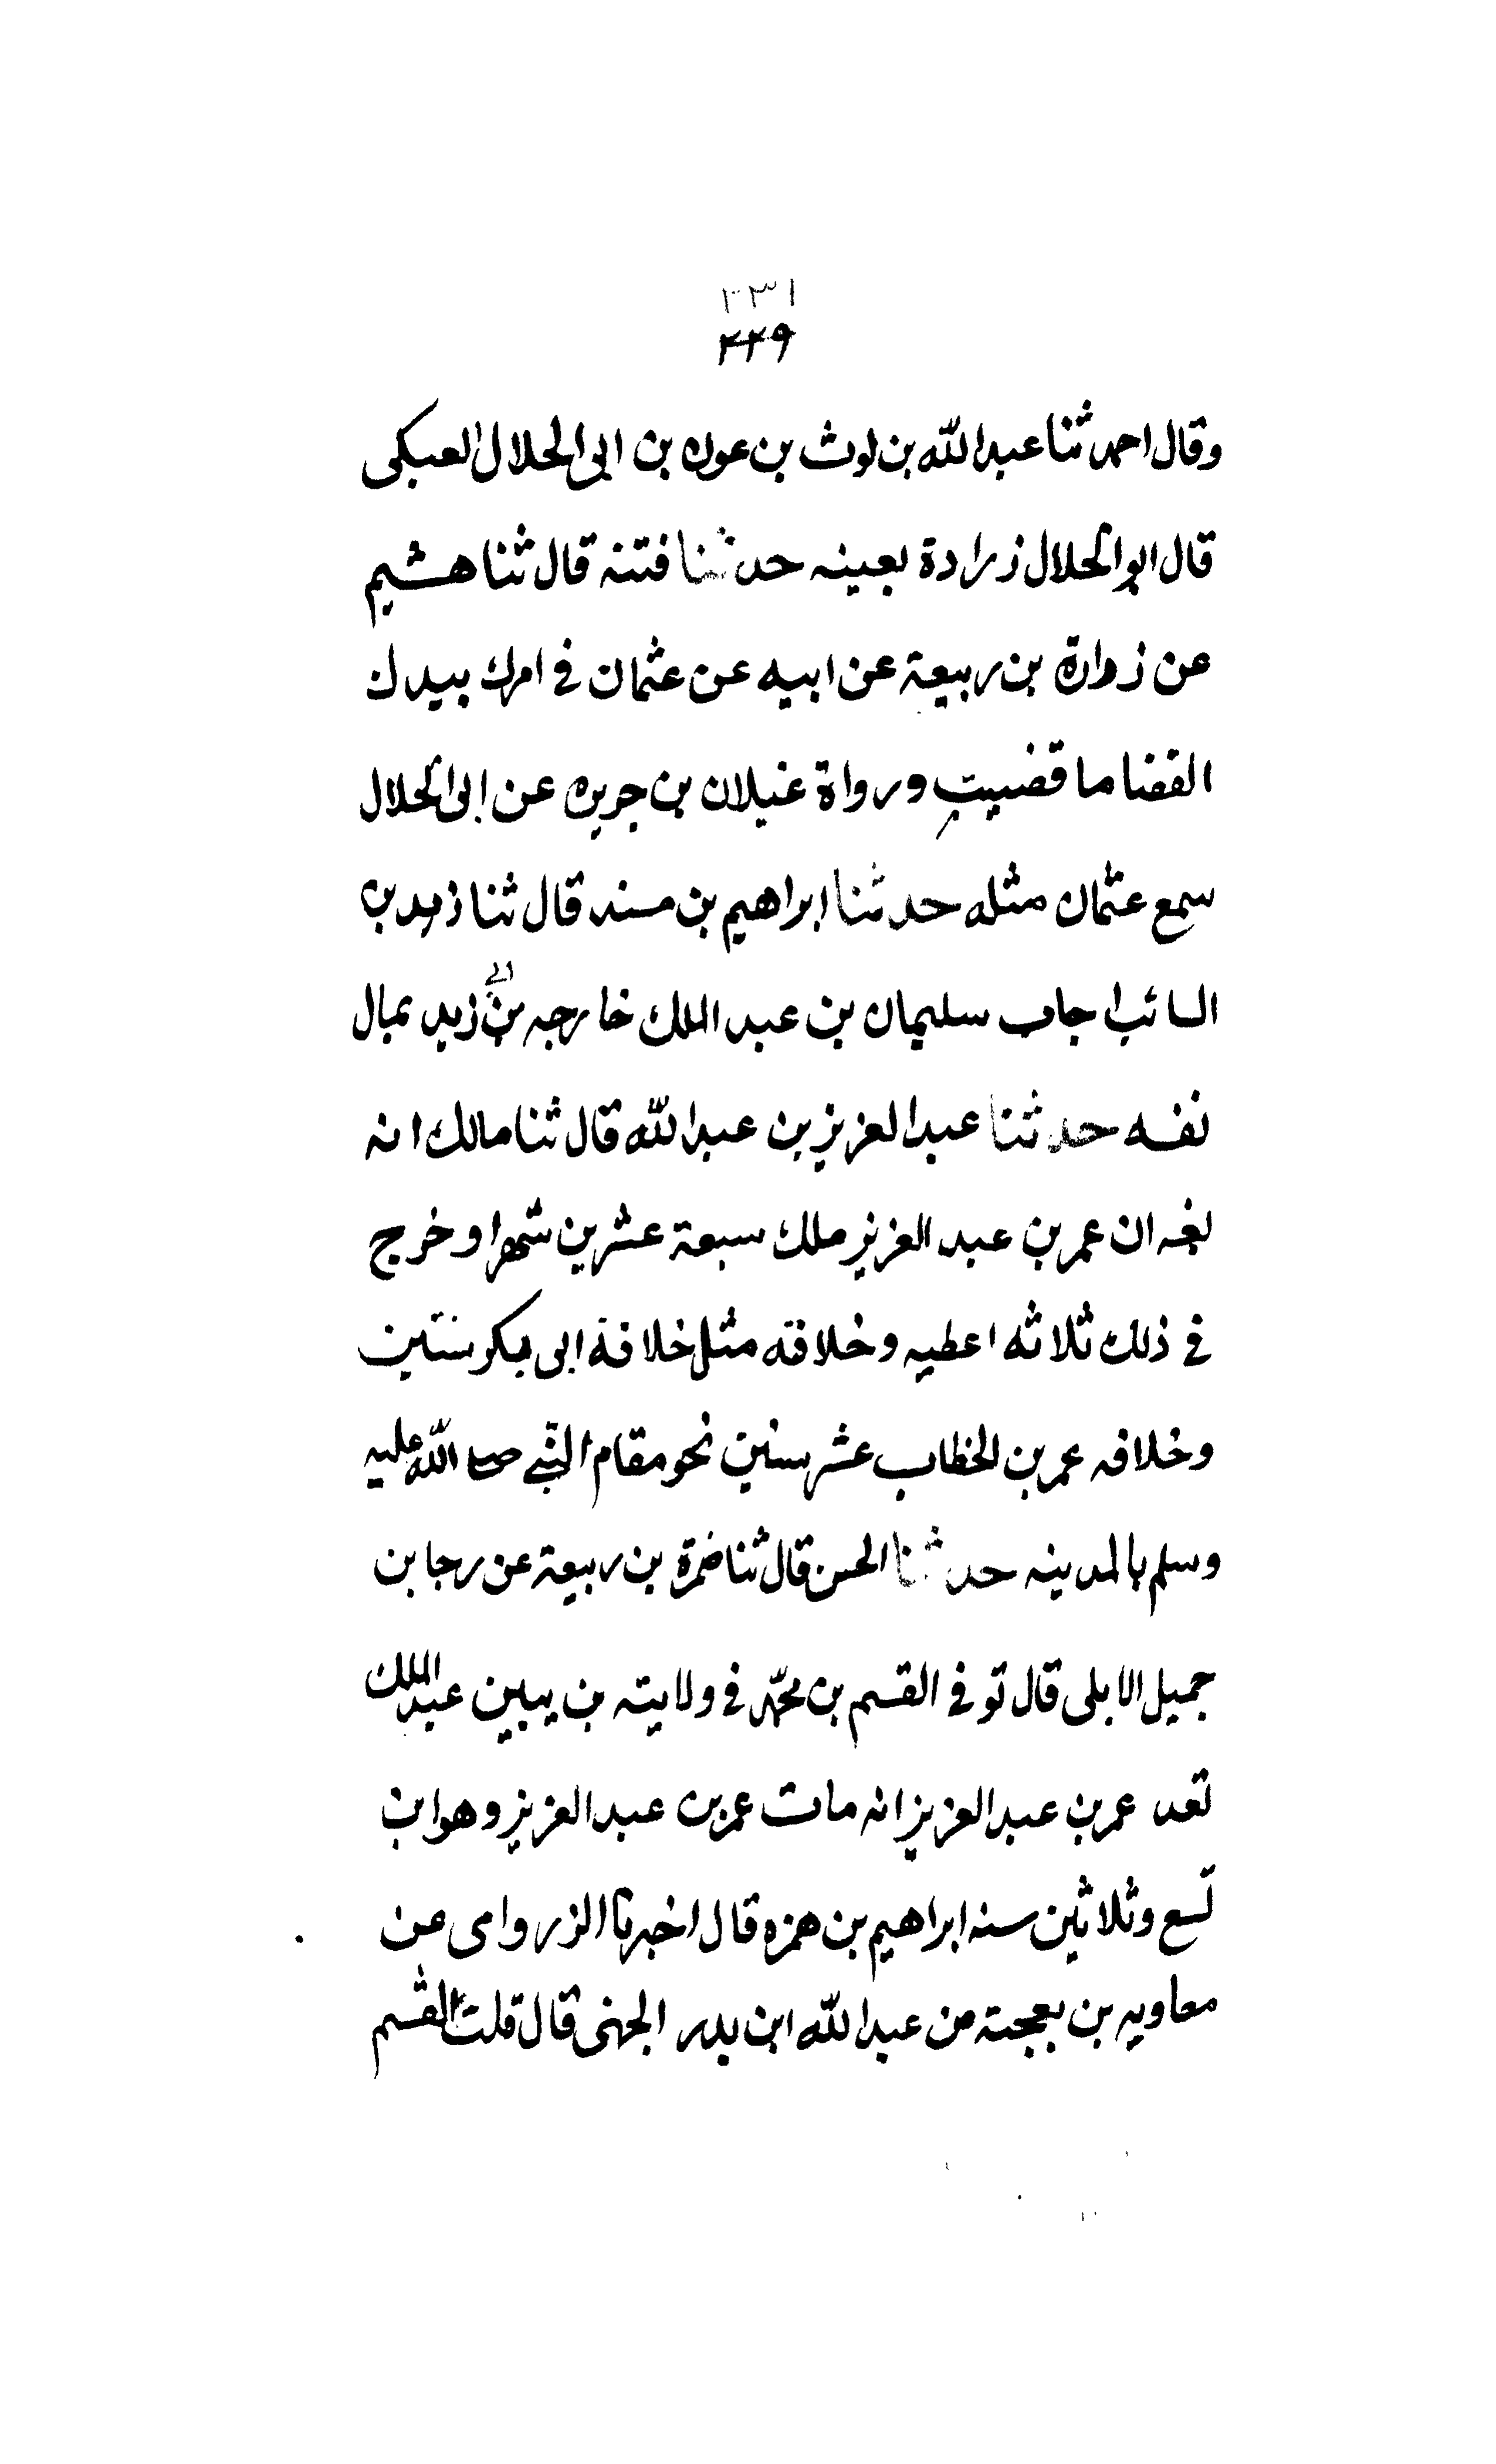 ٢٣١
٢٢٩
وقال احمد ثنا عبد الله بن لوث بن عون بن ابى الحلال العبكى
قال ابو الحلال زرادة بعينه حدثنا فتنه قال ثنا هشيم
عن زوارة بن ربيعة عن ابيه عن عثمان فى امرك بيدك
القضا ما قضيت ورواة غيلان بن جريره عن ابى الحلال
سمع عثمان مثله حدثنا ابراهيم بن مسند قال ثنا زهد بن
السائب اجاب سليمان بن عبد الملك خارجه بن زيد بمال
نفسه حدثنا عبد العزيز بن عبد الله قال ثنا مالك انه
لغه ان عمر بن عبد العزيز ملك سبعة عشرين شهرا وخرج
فى ذلك ثلاثه اعطيه وخلافته مثل خلافة ابى بكر سنتين
وخلافه عمر بن الخطاب عشر سنين نحو مقام النبى صلى الله عليه
وسلم بالمدينه حدثنا الحسن قال ثنا ضمرة بن ربيعة عن رجا بن
جميل الابلى قال توفى القسم بن محمد فى ولايته بن يبين عبد الملك
تعد عمر بن عبد العزيز انه مات عمر بن عبد العزيز وهو ابن
تسع وثلاثين سنه ابراهيم بن همزه قال اخبرنا الزرواى عن
معاويه بن بعجته من عبد الله ابن بدر الجهنى قال قلت القسم